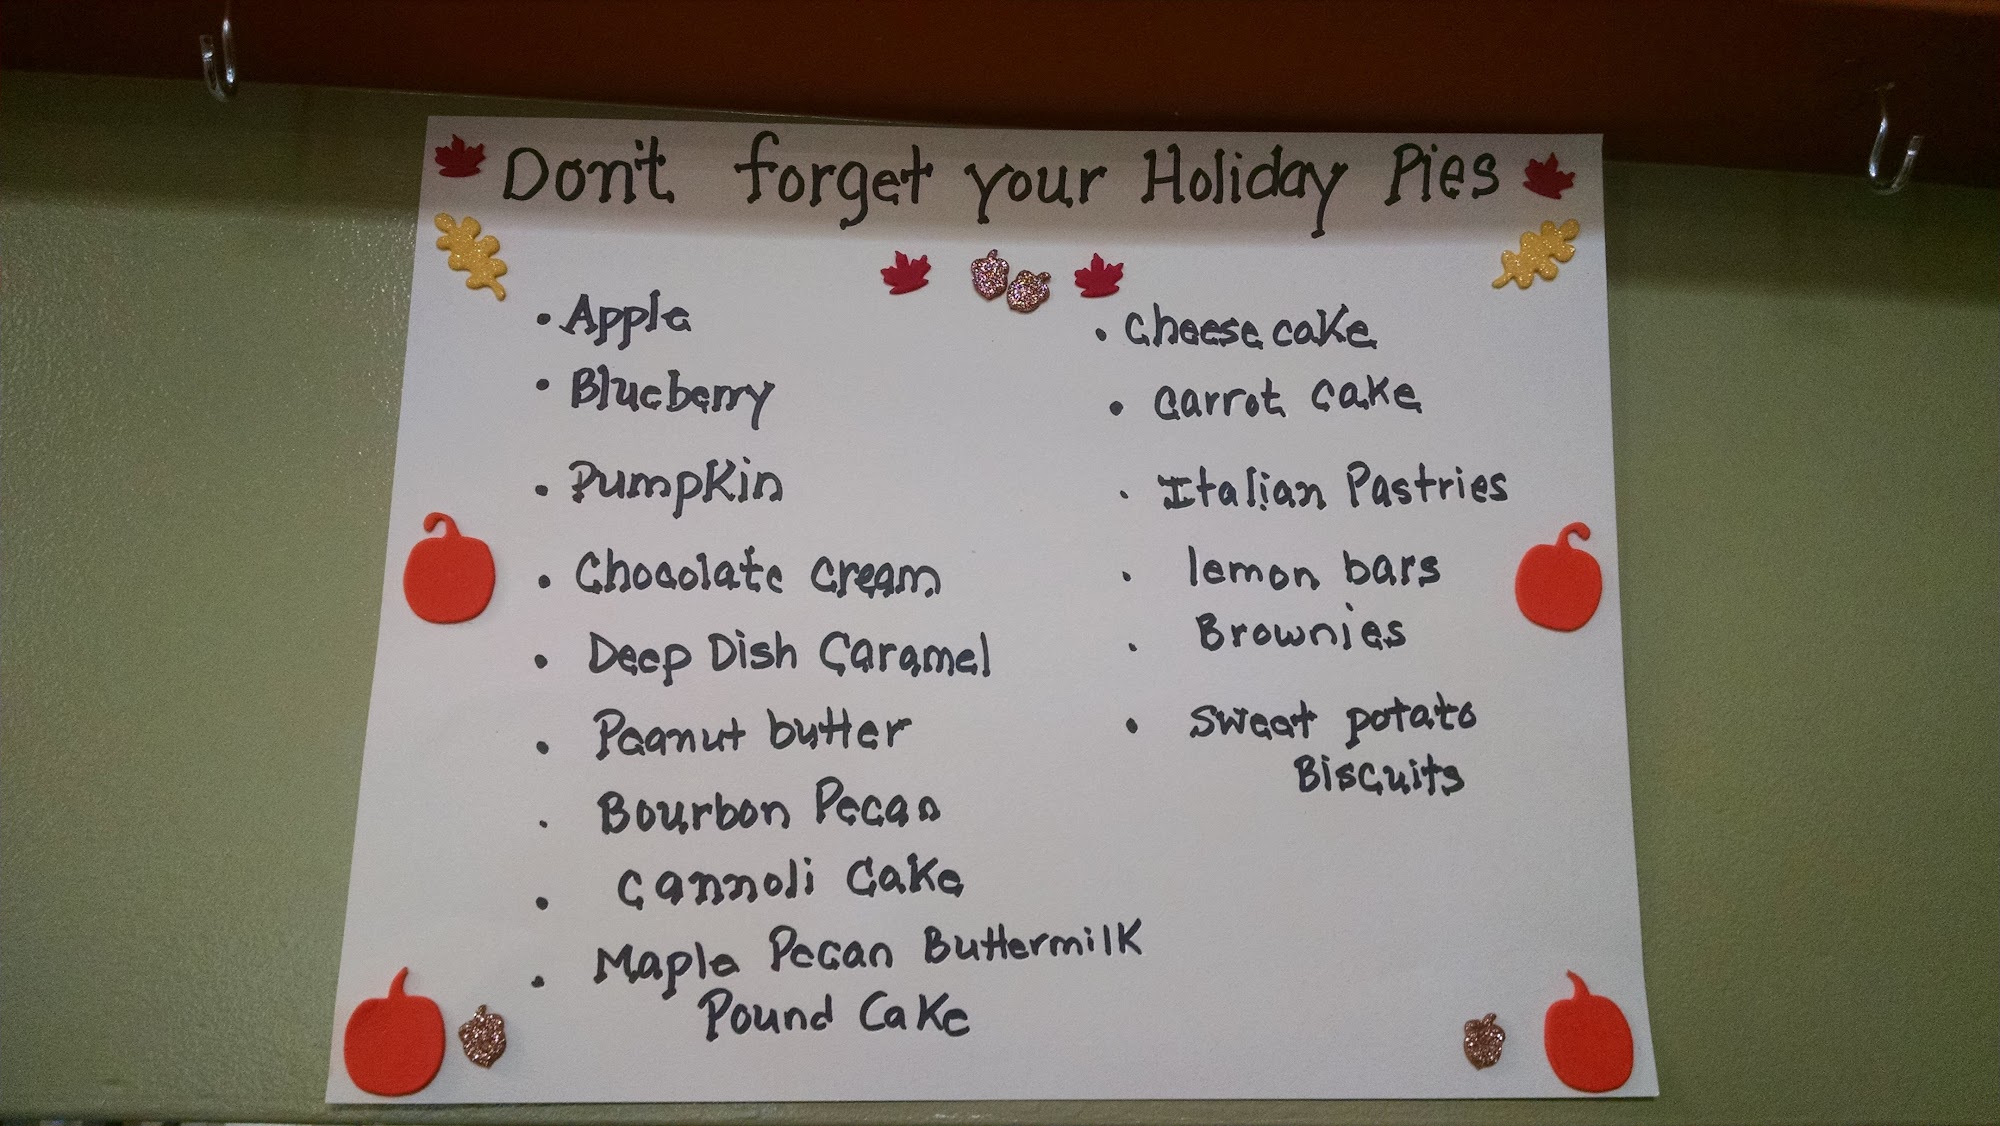 Don't forget your Holiday Pies
• Apple
• Blueberry
• Pumpkin
• Chocolate Cream
• Deep Dish Caramel
• Peanut butter
• Bourbon Pecan
• Cannoli Cake
• Maple Pecan Buttermilk
Pound Cake
• Cheese cake
• Carrot Cake
• Italian Pastries
• lemon bars
• Brownies
• Sweet potato
Biscuits